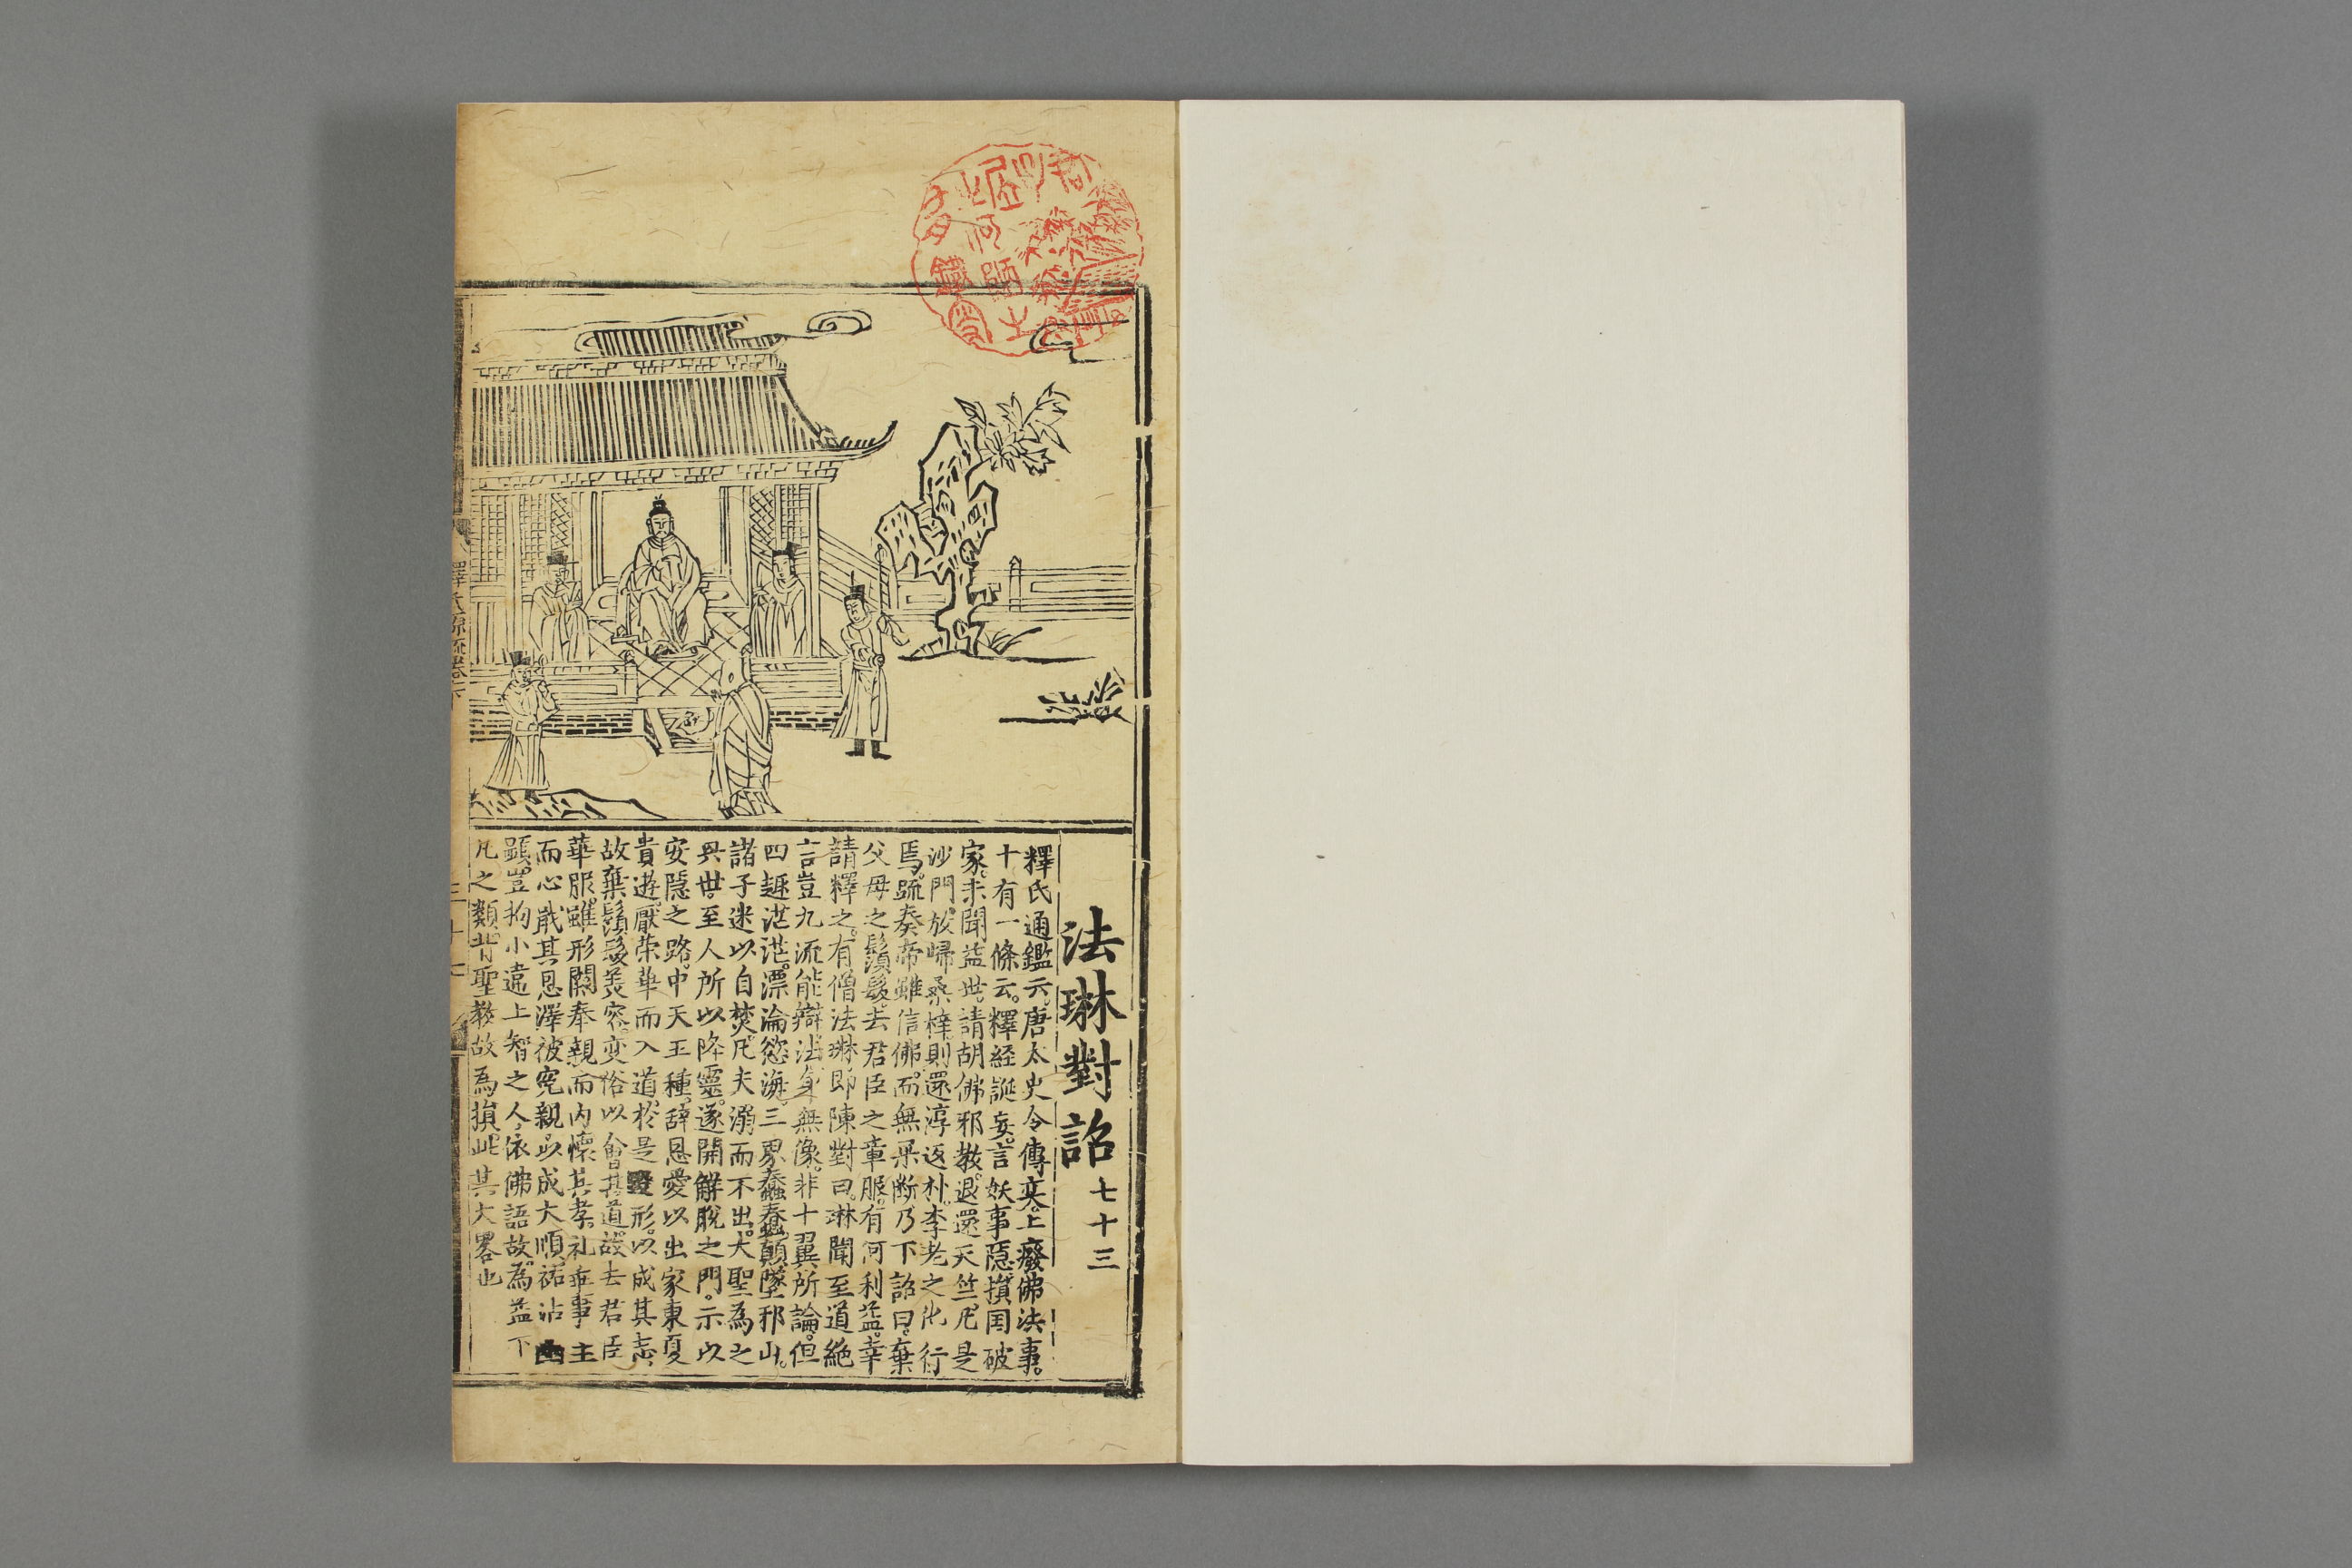 法琳對詔七十三
釋氏通鑑云。唐太史令傅奕。上癈佛法事。
十有一條云。釋経誕妄。言妖事隱。損国破
家。未聞益世。請胡佛邪教。退還天竺。凡是
沙門。放歸桑梓。則還淳返朴。李老之化行
焉。疏奏帝雖信佛。而無果断乃下詔曰。棄
父母之鬚髮。去君臣之章服。有何利益。幸
請釋之。有僧法琳。即陳對曰。琳聞至道絶
言豈九流能辯。法身無像。非十翼所論。但
四趣茫茫。漂淪慾海。三界蠢蠢。顛墜邪山。
諸子迷以自焚。凡夫溺而不出。大聖為之
興世。至人所以降靈。遂開解脫之門。示以
安隱之路。中天王種。辞恩愛以出家東夏
貴遊。厭荣華而入道。於是形。以成其志
故棄鬚髮美容。变俗以會其道。故去君臣
華服。雖形闕奉親而内懷其孝。礼乖事主
而心戢其恩澤彼寃親以成大順祐沾
顕。豈拘小違上智之人。依佛語故為益下
凡之類。背聖教故為損此其大畧也